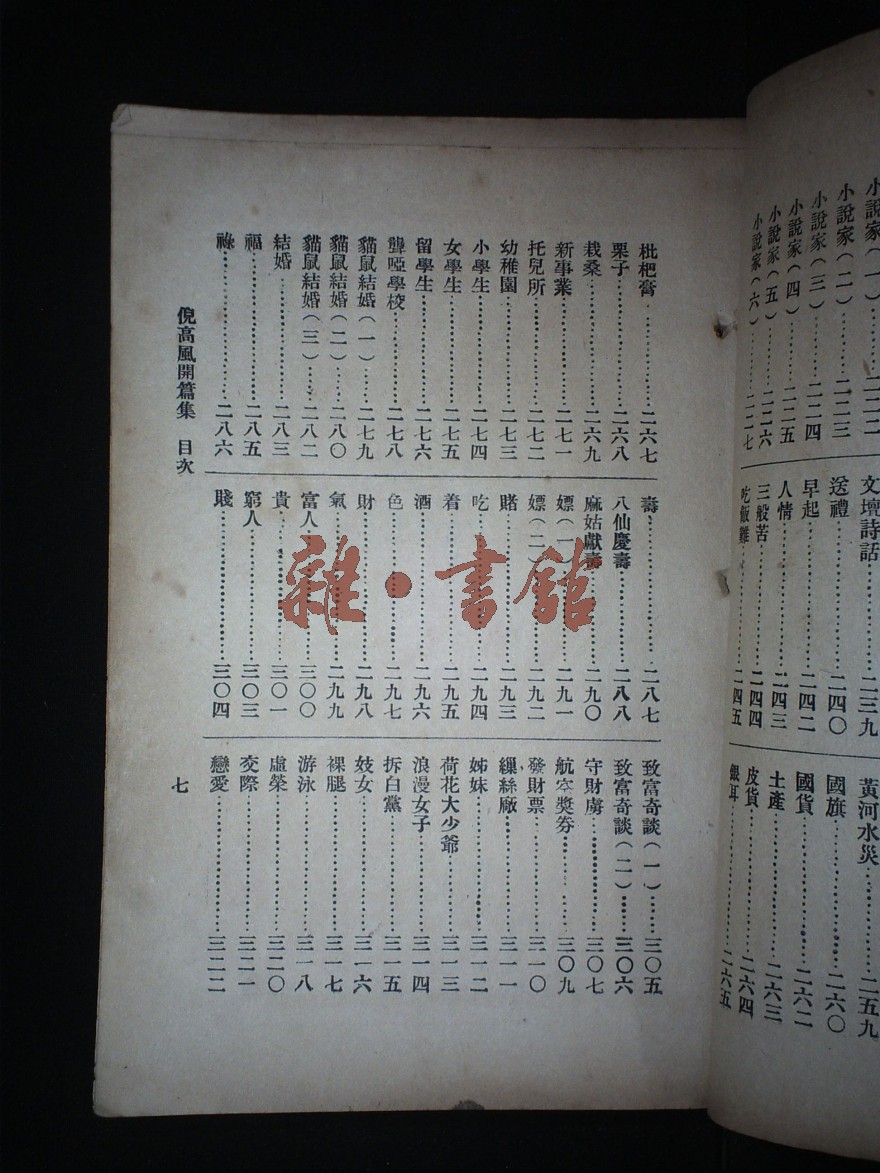 小說家（一）…………二二二
小說家（二）…………二二三
小說家（三）…………二二四
小說家（四）…………二二五
小說家（五）…………二二六
小說家（六）…………二二七
文壇詩話…………二三九
送禮…………二四〇
早起…………二四二
人情…………二四三
三般苦…………二四四
吃飯難…………二四五
黃河水災…………二五九
國旗…………二六〇
國貨…………二六二
土產…………二六三
皮貨…………二六四
銀耳…………二六五
枇杷膏…………二六七
栗子…………二六八
栽桑…………二六九
新事業…………二七一
托兒所…………二七二
幼稚園…………二七三
小學生…………二七四
女學生…………二七五
留學生…………二七六
聾啞學校…………二七八
貓鼠結婚（一）…………二七九
貓鼠結婚（二）…………二八〇
貓鼠結婚（三）…………二八二
結婚…………二八三
福…………二八五
祿…………二八六
壽…………二八七
八仙慶壽…………二八八
麻姑獻壽…………二九〇
嫖（一）…………二九一
嫖（二）…………二九二
賭…………二九三
吃…………二九四
着…………二九五
酒…………二九六
色…………二九七
財…………二九八
氣…………二九九
富人…………三〇〇
貴…………三〇一
窮人…………三〇三
賤…………三〇四
致富奇談（一）…………三〇五
致富奇談（二）…………三〇六
守財虜…………三〇七
航空獎券…………三〇九
發財票…………三一〇
繅絲廠…………三一一
姊妹…………三一二
荷花大少爺…………三一三
浪漫女子…………三一四
拆白黨…………三一五
妓女…………三一六
裸腿…………三一七
游泳…………三一八
虛榮…………三二〇
交際…………三二一
戀愛…………三二二
倪高風開篇集 目次
七
雜·書館